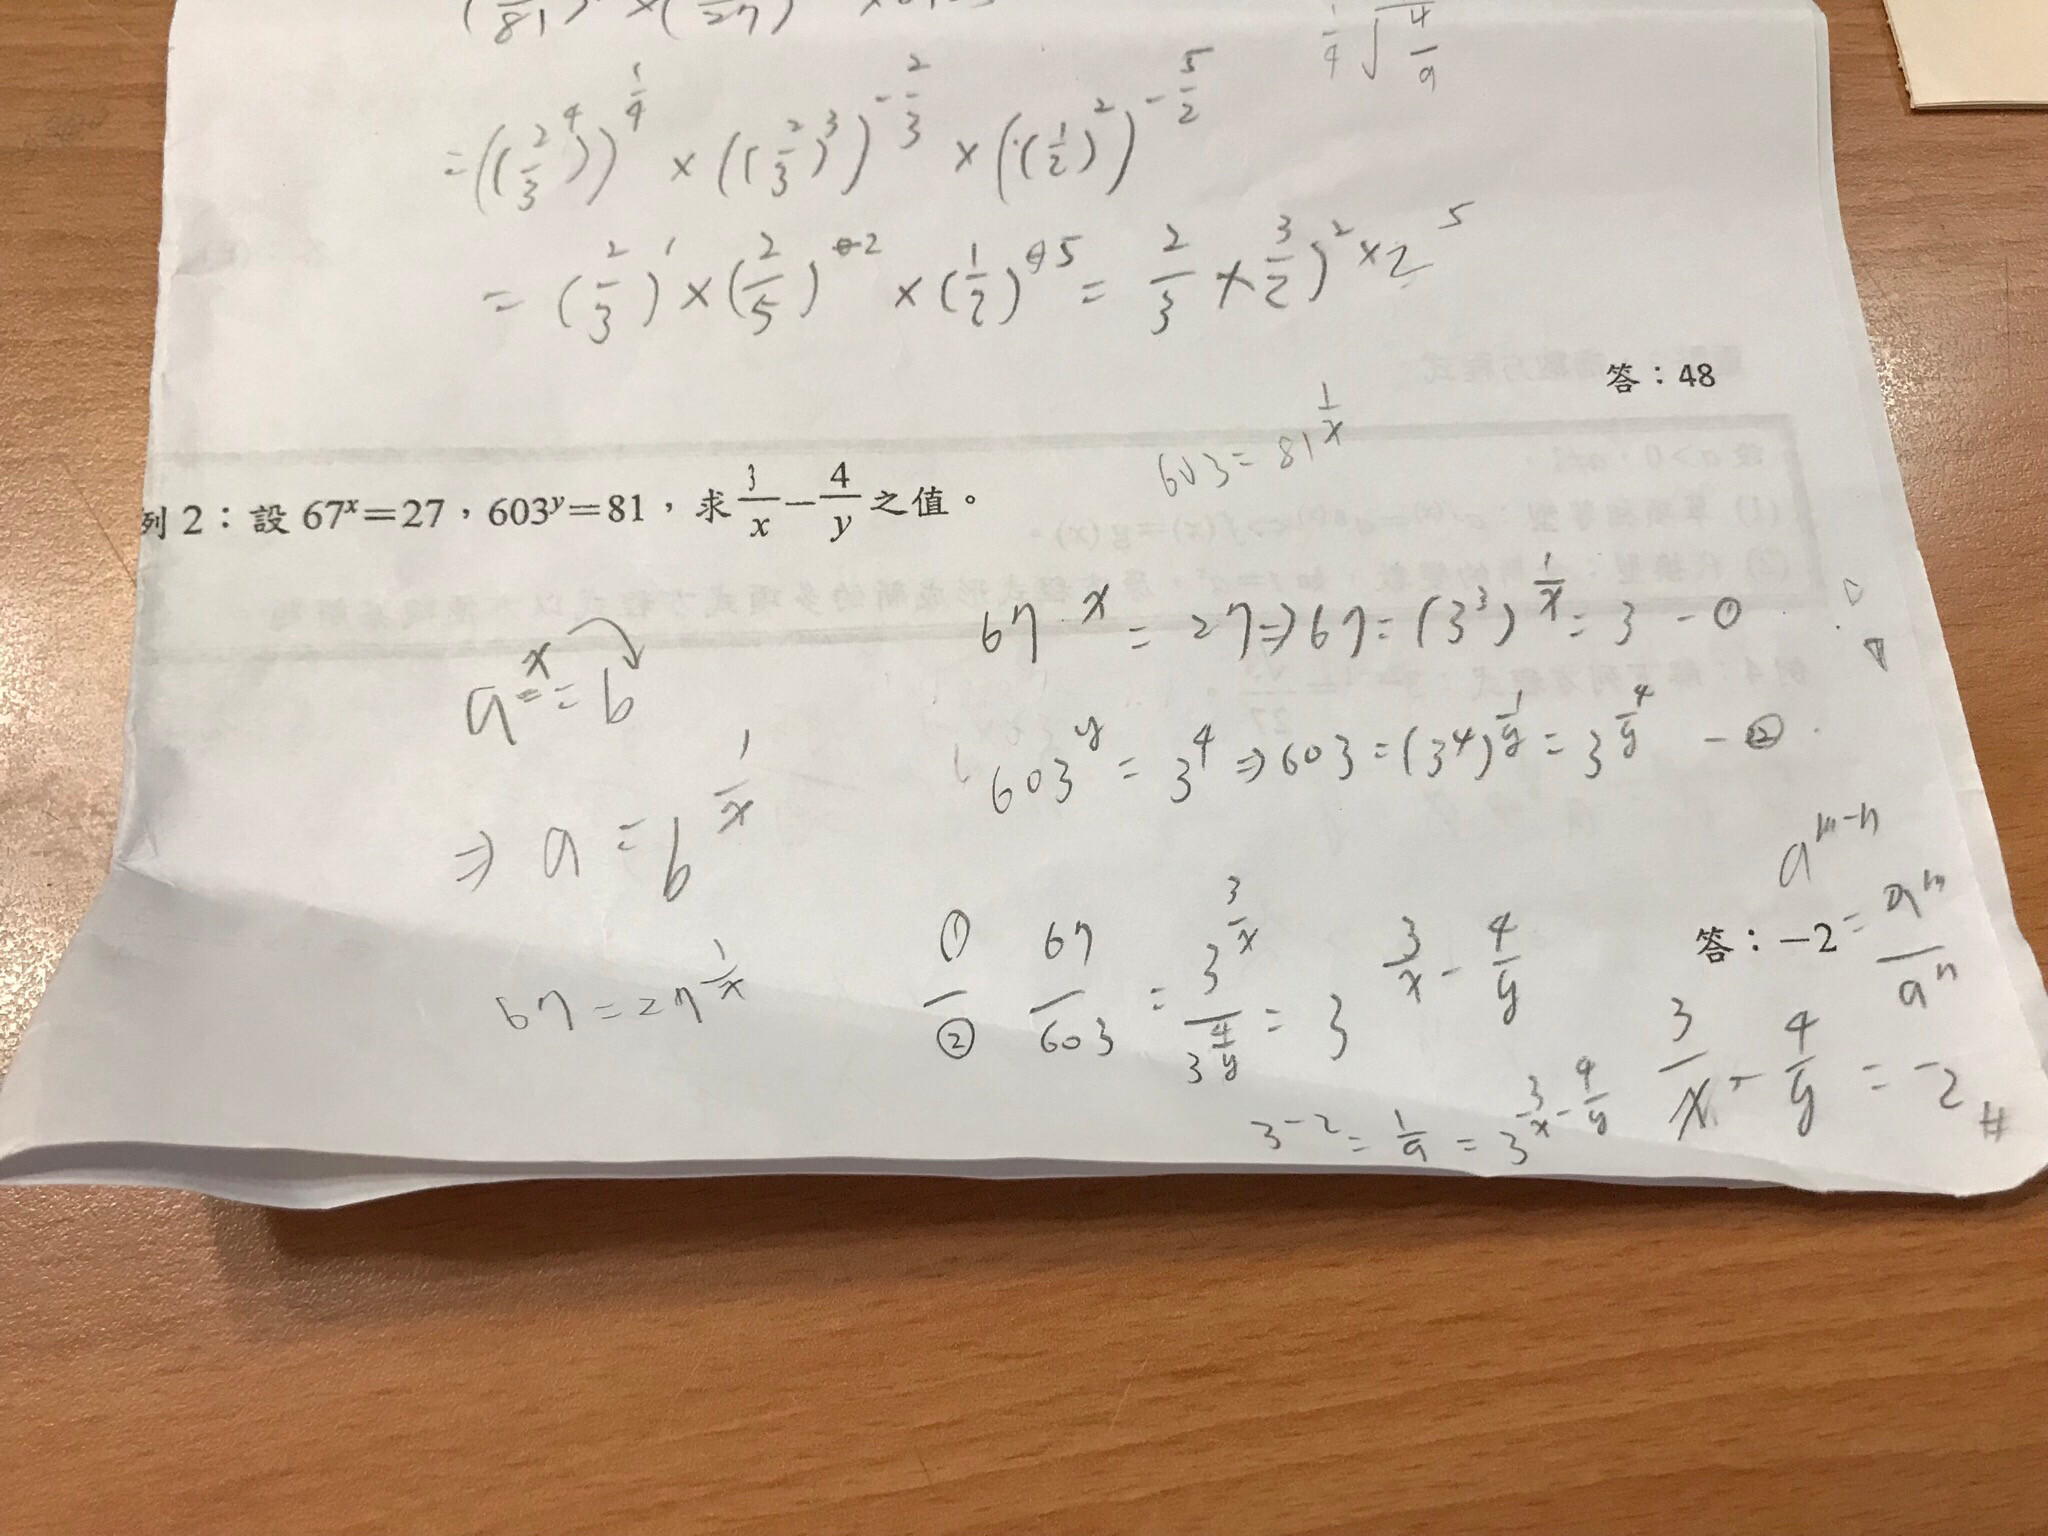 (—/81) ×(—/27)
1/4 √4/9
=((2/3)^4)^1/4 × ((2/3)^3)^-2/3 × ((1/2)^2)^-5/2
= (2/3)^1 × (2/5)^-2 × (1/2)^-5 = 2/3 × 3/2)^2 × 2^5
答：48
603 = 81^1/x
列 2：設 67^x=27，603^y=81，求 3/x − 4/y 之值。
67^x = 27 ⇒ 67 = (3^3)^1/x = 3 - ①
a^x = b
603^y = 3^4 ⇒ 603 = (3^4)^1/y = 3^4/y - ②
⇒ a = b^1/x
a^m-n = a^m/a^n
答：−2
67 = 27^1/x
①/② 67/603 = 3^3/x / 3^4/y = 3^3/x - 4/y
3^-2 = 1/9 = 3^3/x - 4/y
3/x - 4/y = -2 #